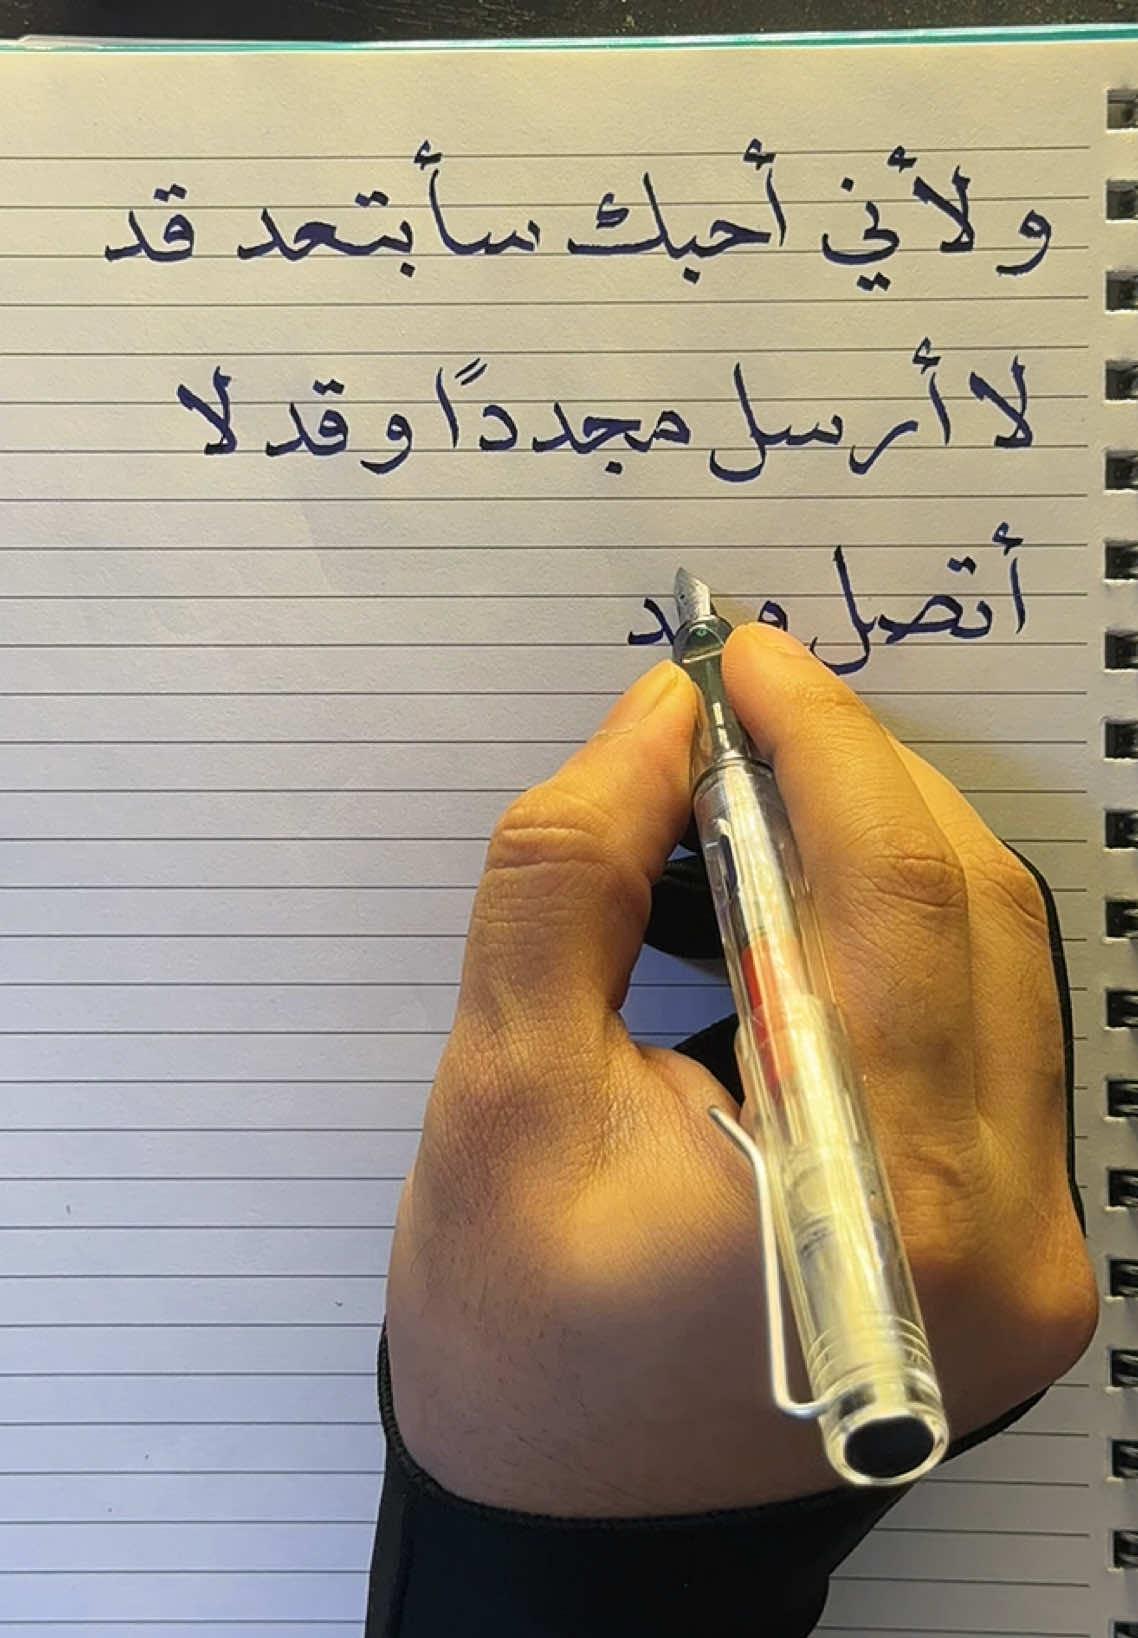 و لأني أحبك سأبتعد قد
لا أرسل مجددًا و قد لا
أتصل